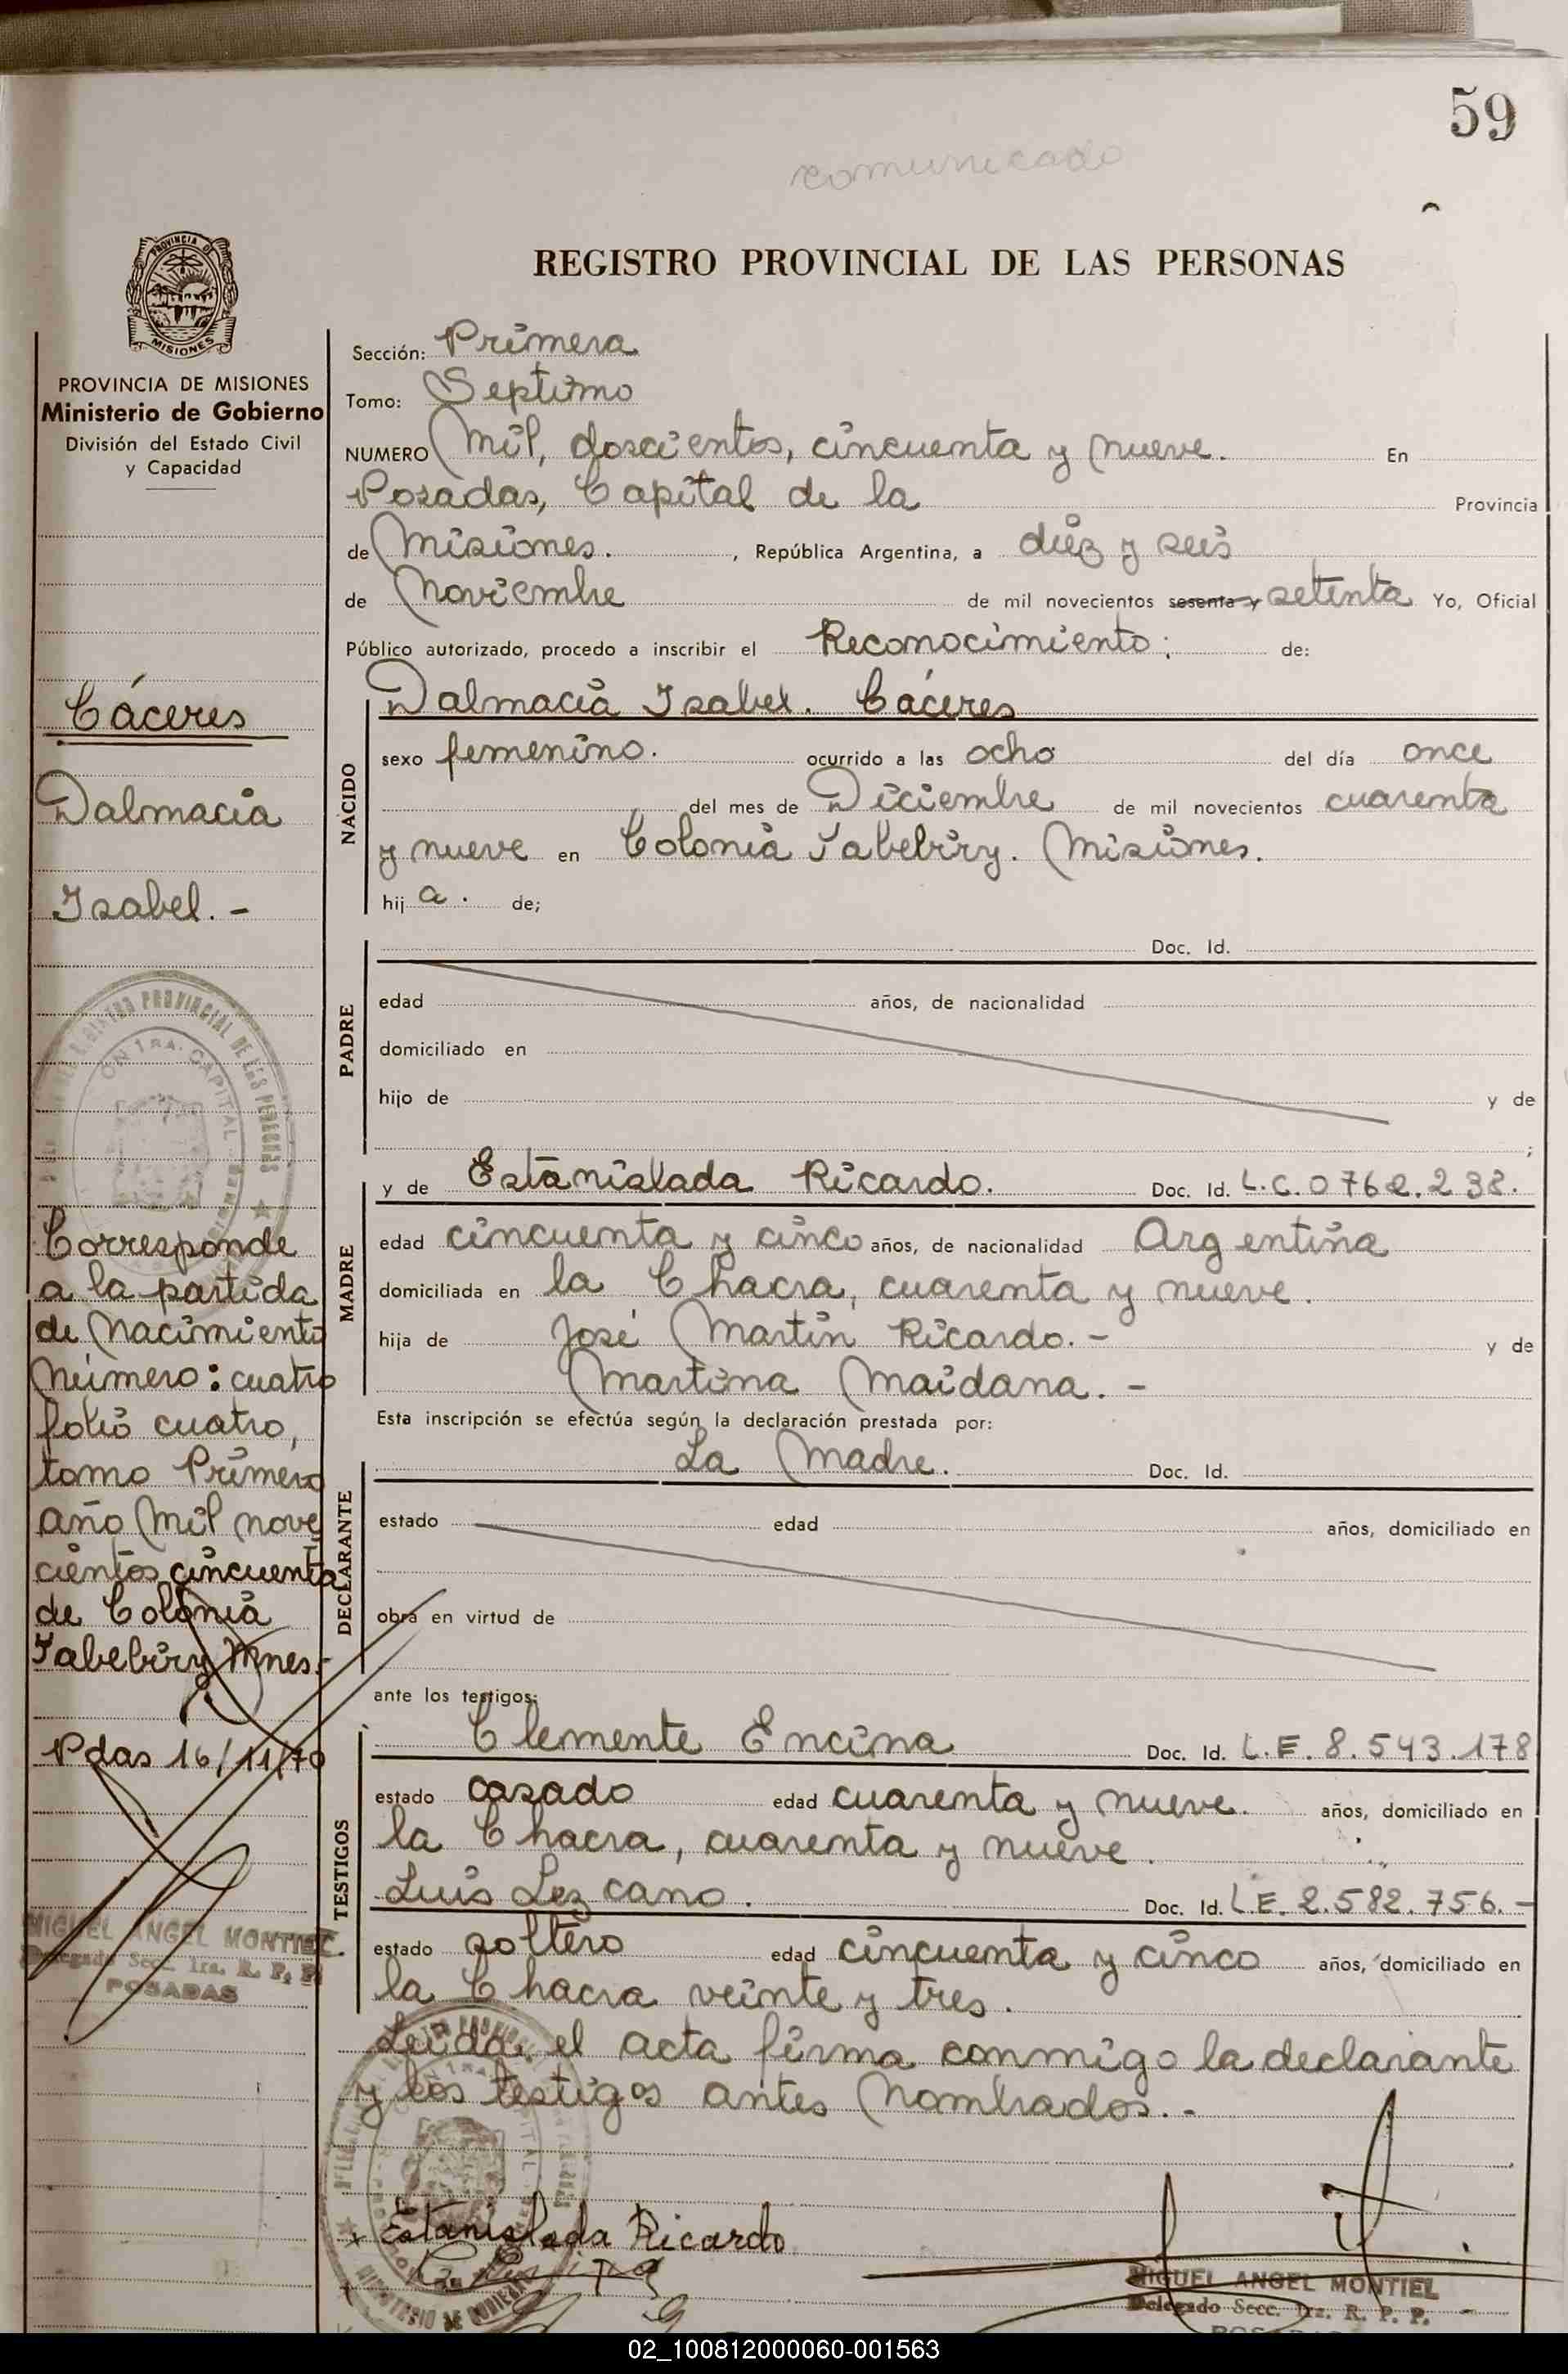 59
comunicado
REGISTRO PROVINCIAL DE LAS PERSONAS
PROVINCIA DE MISIONES
Ministerio de Gobierno
División del Estado Civil
y Capacidad
Sección: Primera
Tomo: Septimo
NUMERO Mil, doscientos, cincuenta y nueve. En
Posadas, Capital de la Provincia
de Misiones. , República Argentina, a diez y seis
de Noviembre de mil novecientos sesenta y setenta Yo, Oficial
Público autorizado, procedo a inscribir el Reconocimiento: de:
Cáceres
Dalmacia
Isabel. -
NACIDO
Dalmacia Isabel. Cáceres
sexo femenino. ocurrido a las ocho del día once
del mes de Diciembre de mil novecientos cuarenta
y nueve en Colonia Yabebiry. Misiones.
hij a. de;
PADRE
Doc. Id.
edad años, de nacionalidad
domiciliado en
hijo de y de
;
MADRE
y de Estanislada Ricardo. Doc. Id. L.C. 0762.238.
edad cincuenta y cinco años, de nacionalidad Argentina
domiciliada en la Chacra, cuarenta y nueve.
hija de José Martin Ricardo. - y de
Martina Maidana. -
Esta inscripción se efectúa según la declaración prestada por:
DECLARANTE
La Madre. Doc. Id.
estado edad años, domiciliado en
obra en virtud de
Corresponde
a la partida
de Nacimiento
Número: cuatro
folio cuatro,
tomo Primero
año Mil nove
cientos cincuenta
de Colonia
Yabebiry Mnes.-
Pdas 16/11/70
MIGUEL ANGEL MONTIEL
Delegado Secc. 1ra. R. P. P.
POSADAS
ante los testigos:
TESTIGOS
Clemente Encina Doc. Id. L.E. 8.543.178
estado casado edad cuarenta y nueve. años, domiciliado en
la Chacra, cuarenta y nueve.
Luis Lezcano. Doc. Id. L.E. 2.582.756.-
estado soltero edad cincuenta y cinco años, domiciliado en
la Chacra veinte y tres.
Leida, el acta firma conmigo la declarante
y los testigos antes Nombrados. -
Estanislada Ricardo
MIGUEL ANGEL MONTIEL
Delegado Secc. 1ra. R. P. P.
02_100812000060-001563